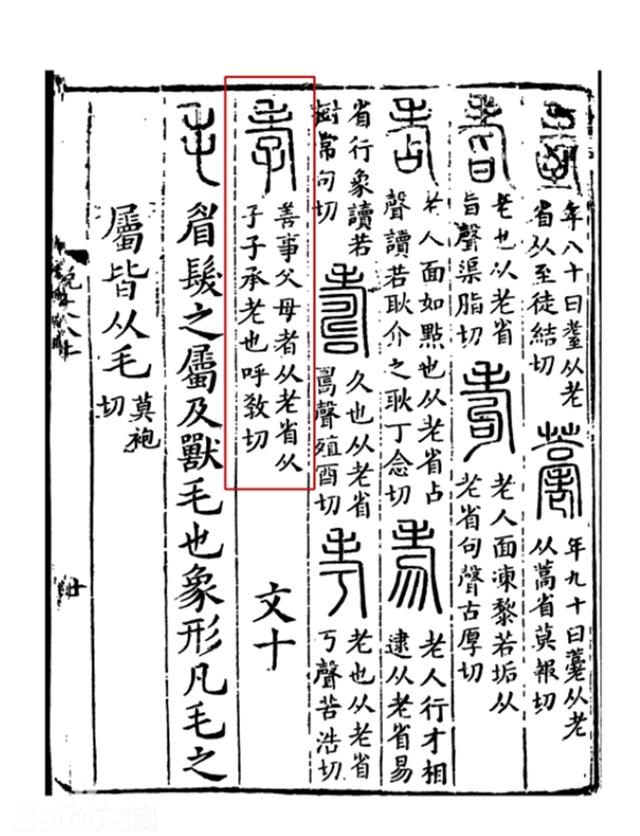 耋 年八十曰耋从老省从至徒結切 𦽡 年九十曰𦽡从老从蒿省莫報切
耆 老也从老省旨聲渠脂切 耇 老人面凍黎若垢从老省句聲古厚切
𦒻 老人面如點也从老省占聲讀若耿介之耿丁念切 𦒱 老人行才相逮从老省易
省行象讀若樹常句切 壽 久也从老省𠷎聲殖酉切 考 老也从老省丂聲苦浩切
孝 善事父母者从老省从子子承老也呼敎切 文十
毛 眉髮之屬及獸毛也象形凡毛之
屬皆从毛 莫袍切
廿
Baidu百科